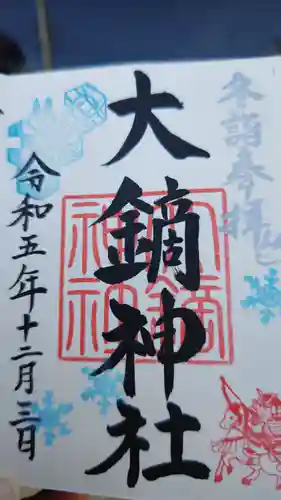 奉拝
大鏑神社
令和五年十二月三日